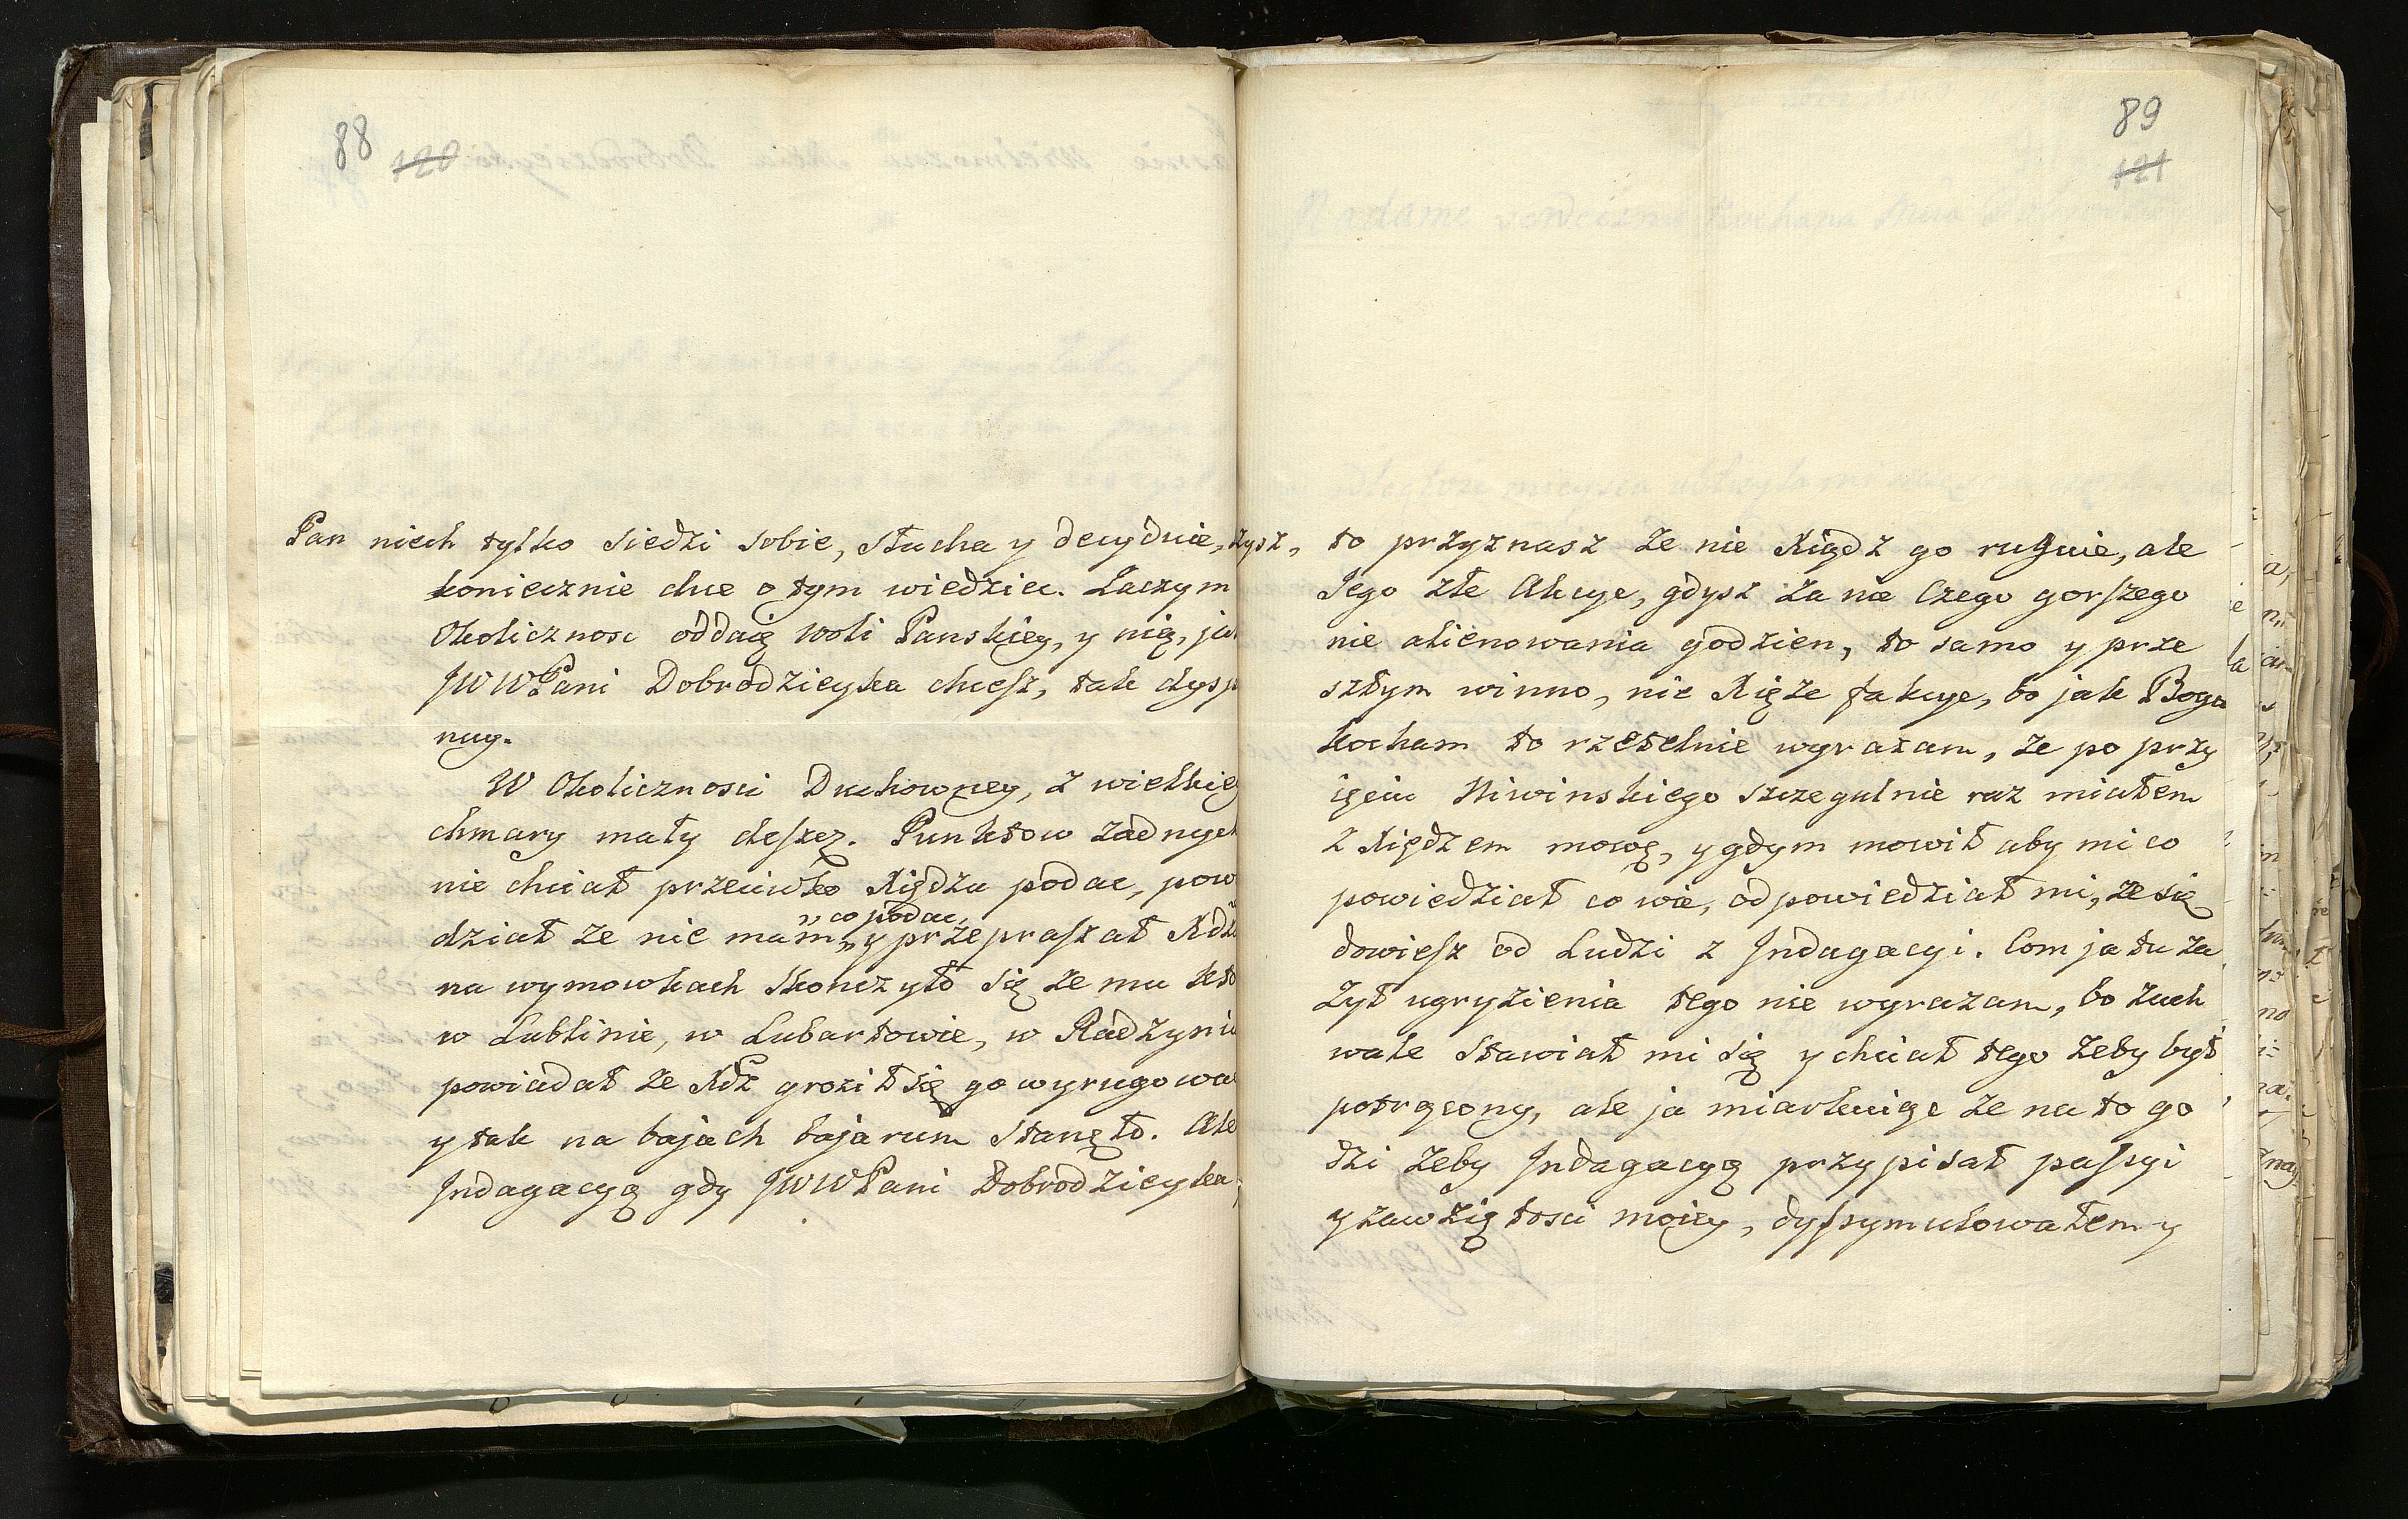 88 120
Pan niech tylko siedzi sobie, słucha y decyduie,
koniecznie chce o tym wiedziec. Zaczym
Okolicznosc oddaię woli Panskiey, y nią, ja
JWWPani Dobrodzieyka chcesz, tak dysp
nuy.
W Okolicznosci Duchowney, z wielkiey
chmary mały deszcz. Punktow zadnych
nie chciał przeciwko Xiędzu podac, powi
dział ze nie mam, y przepraszał Xdz
co podac,
na wymowkach skonczyło się ze mu kto
w Lublinie, w Lubartowie, w Radzyniu
powiadał ze Xdz groził się go wyrugowa
y tak na bajach bajarum stanęło. Ale
Indagacyą gdy JWWPani Dobrodzieyka
89
121
zysz, to przyznasz ze nie Xiądz go ruguie, ale
Jego złe Akcye, gdysz za nic Czego gorszego
nie alienowania godzien, to samo y prze
szłym winno, nie Xięże fakcye, bo jak Boga
kocham to rzetelnie wyrazam, ze po przy
ięciu Niwinskiego szczegulnie raz miałem
z Xiędzem mowę, y gdym mowił aby mi co
powiedział co wie, odpowiedział mi, ze się
dowiesz od Ludzi z Indagacyi. Com ja tu za
zył ugryzienia tego nie wyrazam, bo zuch
wale stawiał mi się y chciał tego zeby był
potrącony, ale ja miarkuiąc ze na to go
dzi zeby Indagacyą przypisał passyi
y zawziętosci moiey, dyssymulowałem y